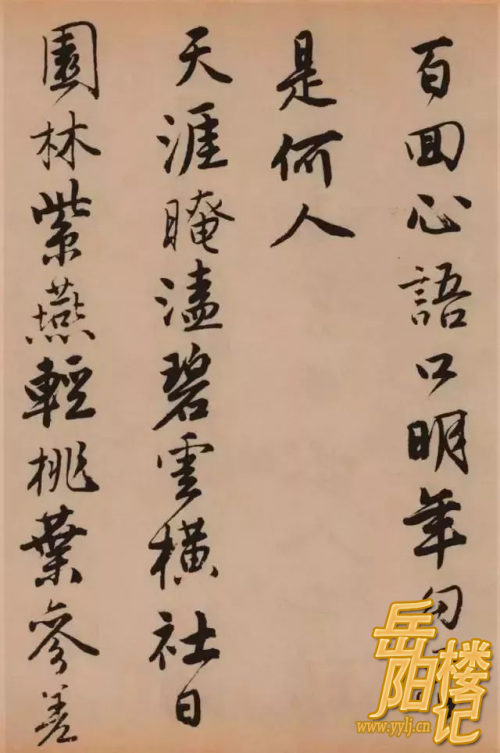 百回心語口明年
是何人
天涯晻溘碧雲橫社日
園林紫燕輕桃葉參差
岳阳楼记
www.yylj.cn